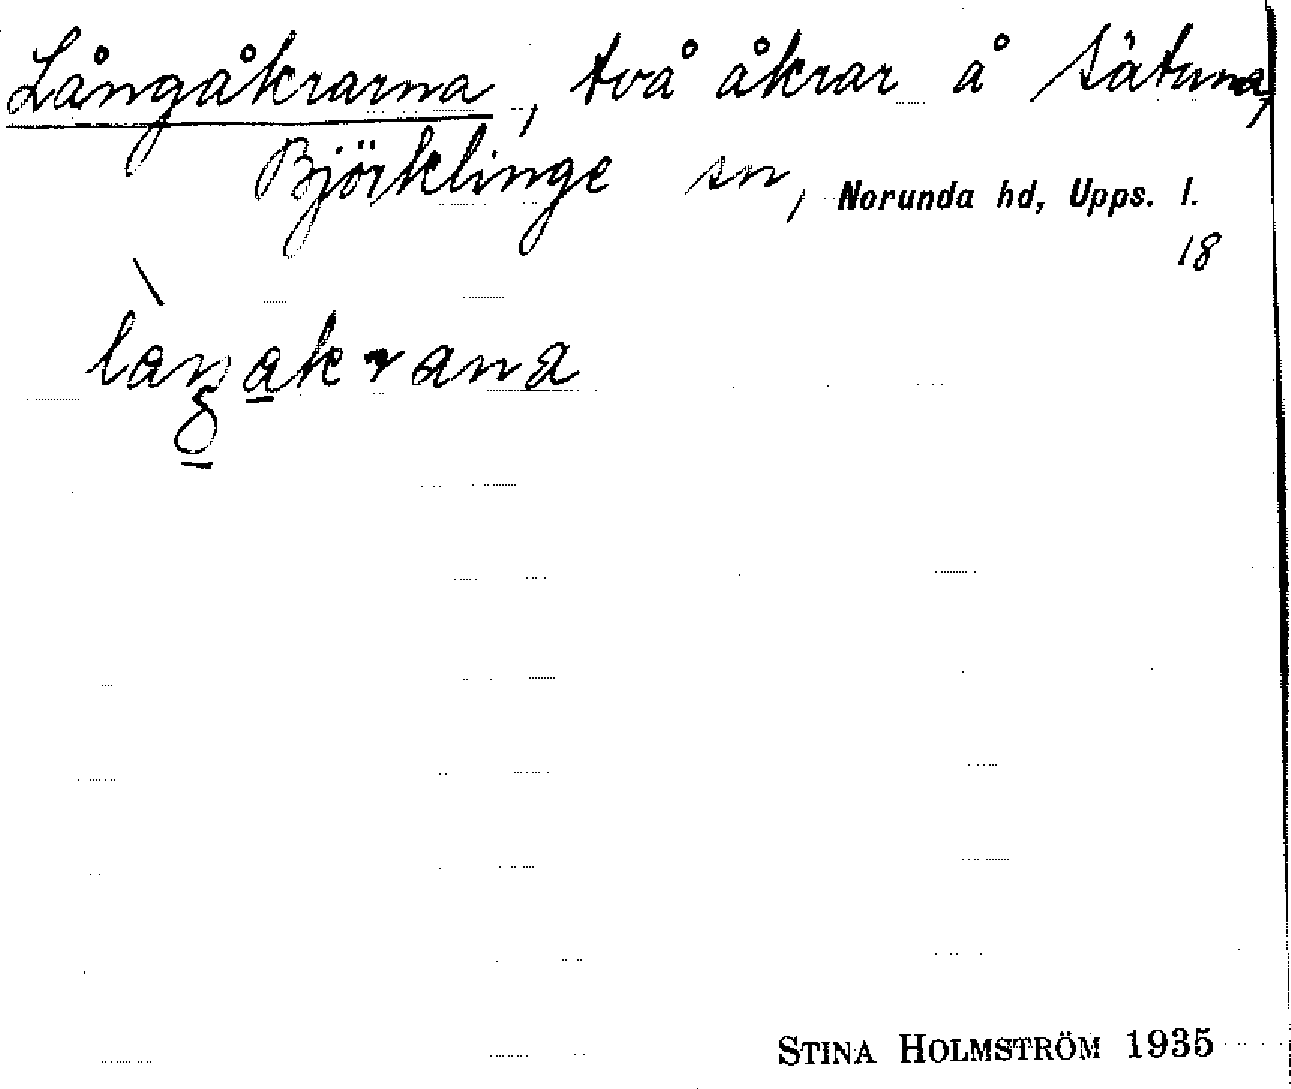 Långåkrarna, två åkrar å Sätuna,
Björklinge sn, Norunda hd, Upps. l.
18
STINA HOLMSTRÖM 1935